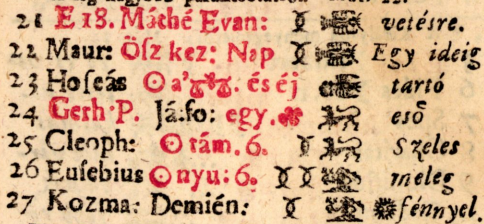 21 E 18. Máthé Evan: vetésre.
22 Maur: Ősz kez: Nap Egy ideig
23 Hoseás ☉ a' ♎ és éj tartó
24 Gerh P. Já: fo: egy. eső
25 Cleoph: ☉ tám. 6. Szeles
26 Eusebius ☉ nyu: 6. meleg
27 Kozma: Demién: fénnyel.